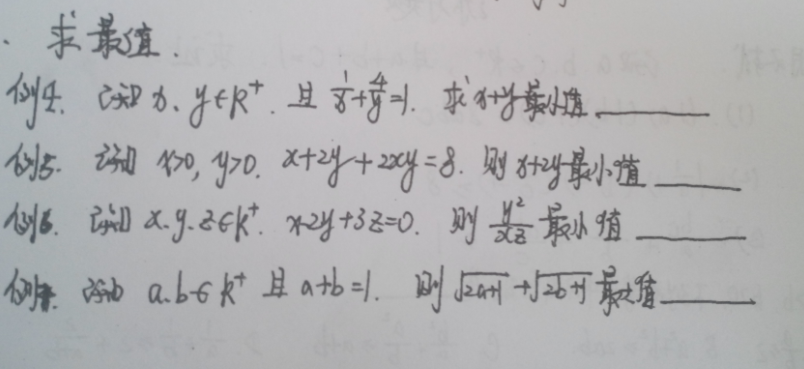 求最值.
例4. 已知 x、y∈R⁺. 且 1/x+4/y=1. 求 x+y最小值. ______
例5. 已知 x>0, y>0. x+2y+2xy=8. 则 x+2y最小值 ______
例6. 已知 x.y.z∈R⁺. x-2y+3z=0. 则 y²/xz 最小值 ______
例7. 已知 a.b∈R⁺ 且 a+b=1. 则 √2a+1+√2b+1 最大值 ______